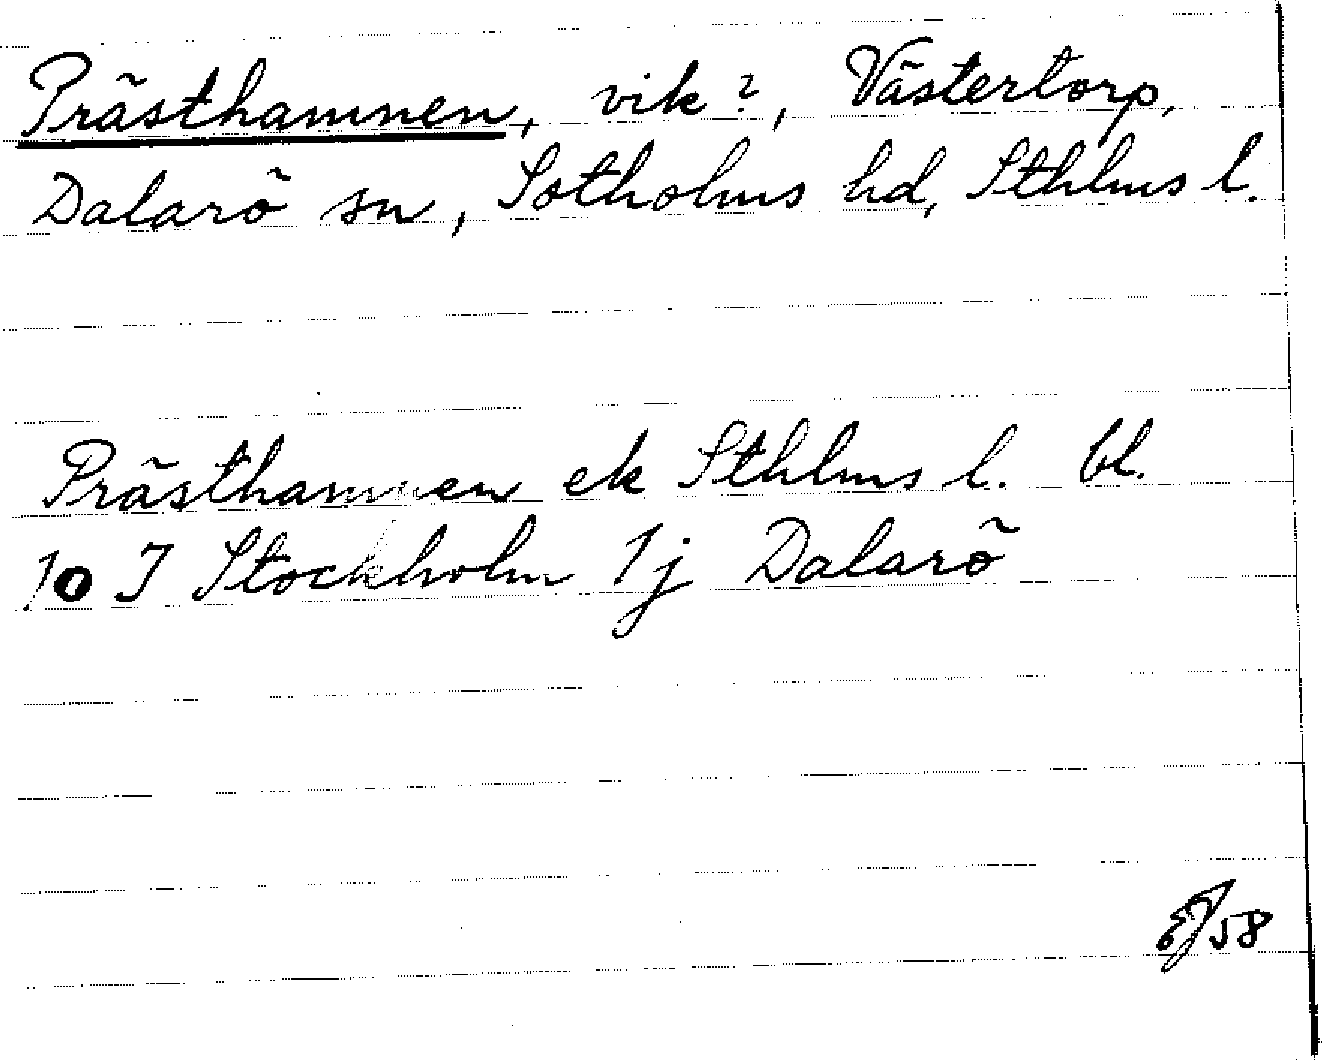 Prästhamnen, vik?, Västertorp,
Dalarö sn, Sotholms hd, Sthlms l.
Prästhamnen ek Sthlms l. bl.
10 I Stockholm 1j Dalarö
EJ 58